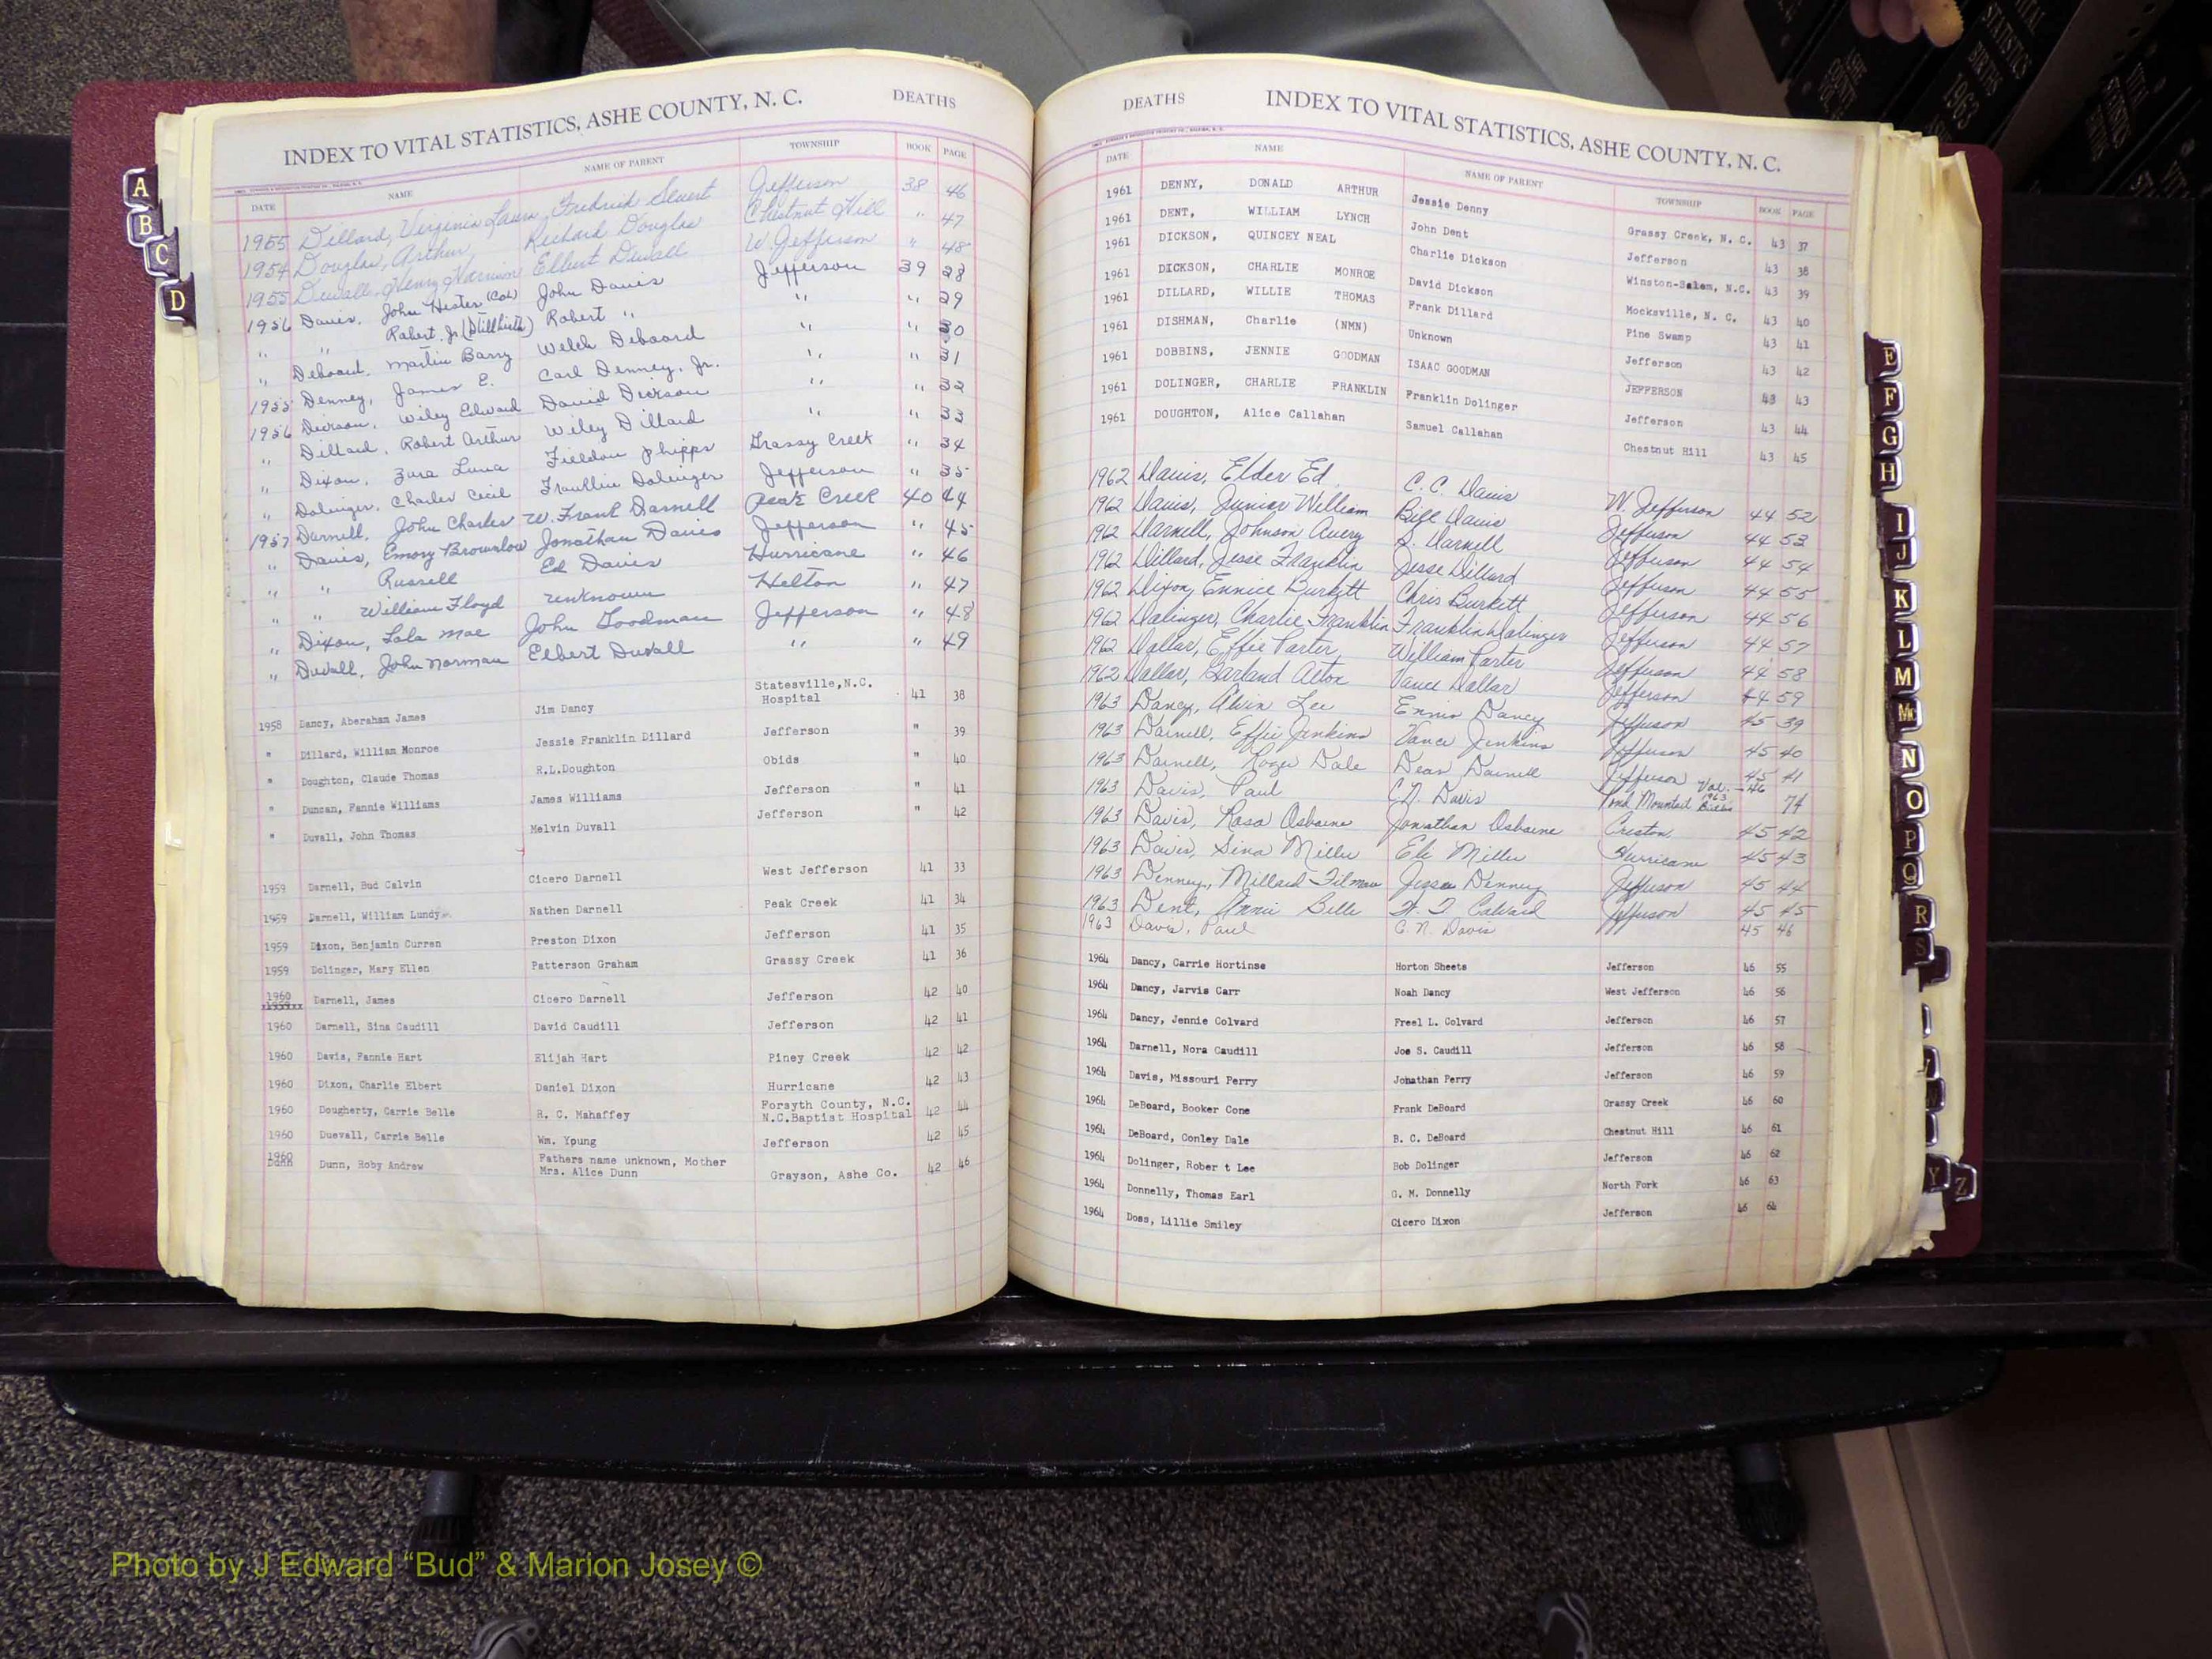 INDEX TO VITAL STATISTICS, ASHE COUNTY, N. C. DEATHS
DATE NAME NAME OF PARENT TOWNSHIP BOOK PAGE
1955 Dillard, Virginia Laura Fredrick Jefferson 38 46
1954 Douglas, Arthur Richard Douglas Chestnut Hill " 47
1955 Duvall, Henry Elbert Duvall W. Jefferson " 48
1956 Davis, John Hester (Col) John Davis Jefferson 39 28
" " Robert, Jr (Stillbirth) Robert " " " 29
" Deboard, Martin Barry Welch Deboard " " 30
1955 Denney, James E. Carl Denney, Jr. " " 31
1956 Dickson, Wiley Edward David Dickson " " 32
" Dillard, Robert Arthur Wiley Dillard " " 33
" Dixon, Zura Luna Fieldon Phipps Grassy Creek " 34
" Dolinger, Charles Cecil Franklin Dolinger Jefferson " 35
1957 Darnell, John Charles W. Frank Darnell Peak Creek 40 44
" Davis, Emory Brownlow Jonathan Davis Jefferson " 45
" " Russell Ed Davis Hurricane " 46
" " William Floyd unknown Helton " 47
" Dixon, Lola Mae John Goodman Jefferson " 48
" Duvall, John Norman Elbert Duvall " " 49
1958 Dancy, Aberaham James Jim Dancy Statesville,N.C. Hospital 41 38
" Dillard, William Monroe Jessie Franklin Dillard Jefferson " 39
" Doughton, Claude Thomas R.L.Doughton Obids " 40
" Duncan, Fannie Williams James Williams Jefferson " 41
" Duvall, John Thomas Melvin Duvall Jefferson " 42
1959 Darnell, Bud Calvin Cicero Darnell West Jefferson 41 33
1959 Darnell, William Lundy Nathen Darnell Peak Creek 41 34
1959 Dixon, Benjamin Curren Preston Dixon Jefferson 41 35
1959 Dolinger, Mary Ellen Patterson Graham Grassy Creek 41 36
1960 Darnell, James Cicero Darnell Jefferson 42 40
1960 Darnell, Sina Caudill David Caudill Jefferson 42 41
1960 Davis, Fannie Hart Elijah Hart Piney Creek 42 42
1960 Dixon, Charlie Elbert Daniel Dixon Hurricane 42 43
1960 Dougherty, Carrie Belle R. C. Mahaffey Forsyth County, N.C. N.C.Baptist Hospital 42 44
1960 Duevall, Carrie Belle Wm. Ypung Jefferson 42 45
1960 Dunn, Roby Andrew Fathers name unknown, Mother Mrs. Alice Dunn Grayson, Ashe Co. 42 46
DEATHS INDEX TO VITAL STATISTICS, ASHE COUNTY, N. C.
DATE NAME NAME OF PARENT TOWNSHIP BOOK PAGE
1961 DENNY, DONALD ARTHUR Jessie Denny Grassy Creek, N. C. 43 37
1961 DENT, WILLIAM LYNCH John Dent Jefferson 43 38
1961 DICKSON, QUINCEY NEAL Charlie Dickson Winston-Salem, N.C. 43 39
1961 DICKSON, CHARLIE MONROE David Dickson Mocksville, N. C. 43 40
1961 DILLARD, WILLIE THOMAS Frank Dillard Pine Swamp 43 41
1961 DISHMAN, Charlie (NMN) Unknown Jefferson 43 42
1961 DOBBINS, JENNIE GOODMAN ISAAC GOODMAN JEFFERSON 43 43
1961 DOLINGER, CHARLIE FRANKLIN Franklin Dolinger Jefferson 43 44
1961 DOUGHTON, Alice Callahan Samuel Callahan Chestnut Hill 43 45
1962 Davis, Elder Ed. C.C. Davis W. Jefferson 44 52
1962 Davis, Junior William Bill Davis Jefferson 44 53
1962 Darnell, Johnson Avery S. Darnell Jefferson 44 54
1962 Dillard, Jesse Franklin Jesse Dillard Jefferson 44 55
1962 Dixon, Eunice Burkett Chris Burkett Jefferson 44 56
1962 Dolinger, Charlie Franklin Franklin Dolinger Jefferson 44 57
1962 Dollar, Effie Porter William Porter Jefferson 44 58
1962 Dollar, Garland Acton Vance Dollar Jefferson 44 59
1963 Dancy, Alvin Lee Ennis Dancy Jefferson 45 39
1963 Darnell, Effie Jenkins Vance Jenkins Jefferson 45 40
1963 Darnell, Roger Dale Dean Darnell Jefferson 45 41
1963 Davis, Paul C.N. Davis Pond Mountain Vol. 46 1963 Births 74
1963 Davis, Rosa Osborne Jonathan Osborne Creston 45 42
1963 Davis, Sina Miller Eli Miller Hurricane 45 43
1963 Denney, Millard Filmore Jesse Denney Jefferson 45 44
1963 Dent, Annie Belle Colvard Jefferson 45 45
1963 Davis, Paul C. N. Davis 45 46
1964 Dancy, Carrie Hortinse Horton Sheets Jefferson 46 55
1964 Dancy, Jarvis Carr Noah Dancy West Jefferson 46 56
1964 Dancy, Jennie Colvard Freel L. Colvard Jefferson 46 57
1964 Darnell, Nora Caudill Joe S. Caudill Jefferson 46 58
1964 Davis, Missouri Perry Johathan Perry Jefferson 46 59
1964 DeBoard, Booker Cone Frank DeBoard Grassy Creek 46 60
1964 DeBoard, Conley Dale B. C. DeBoard Chestnut Hill 46 61
1964 Dolinger, Rober t Lee Bob Dolinger Jefferson 46 62
1964 Donnelly, Thomas Earl G. M. Donnelly North Fork 46 63
1964 Doss, Lillie Smiley Cicero Dixon Jefferson 46 64
A
B
C
D
E
F
G
H
I
J
K
L
M
Mc
N
O
P
Q
R
S
Y
Z
VITAL STATISTICS BIRTHS 1963
Photo by J Edward “Bud” & Marion Josey ©